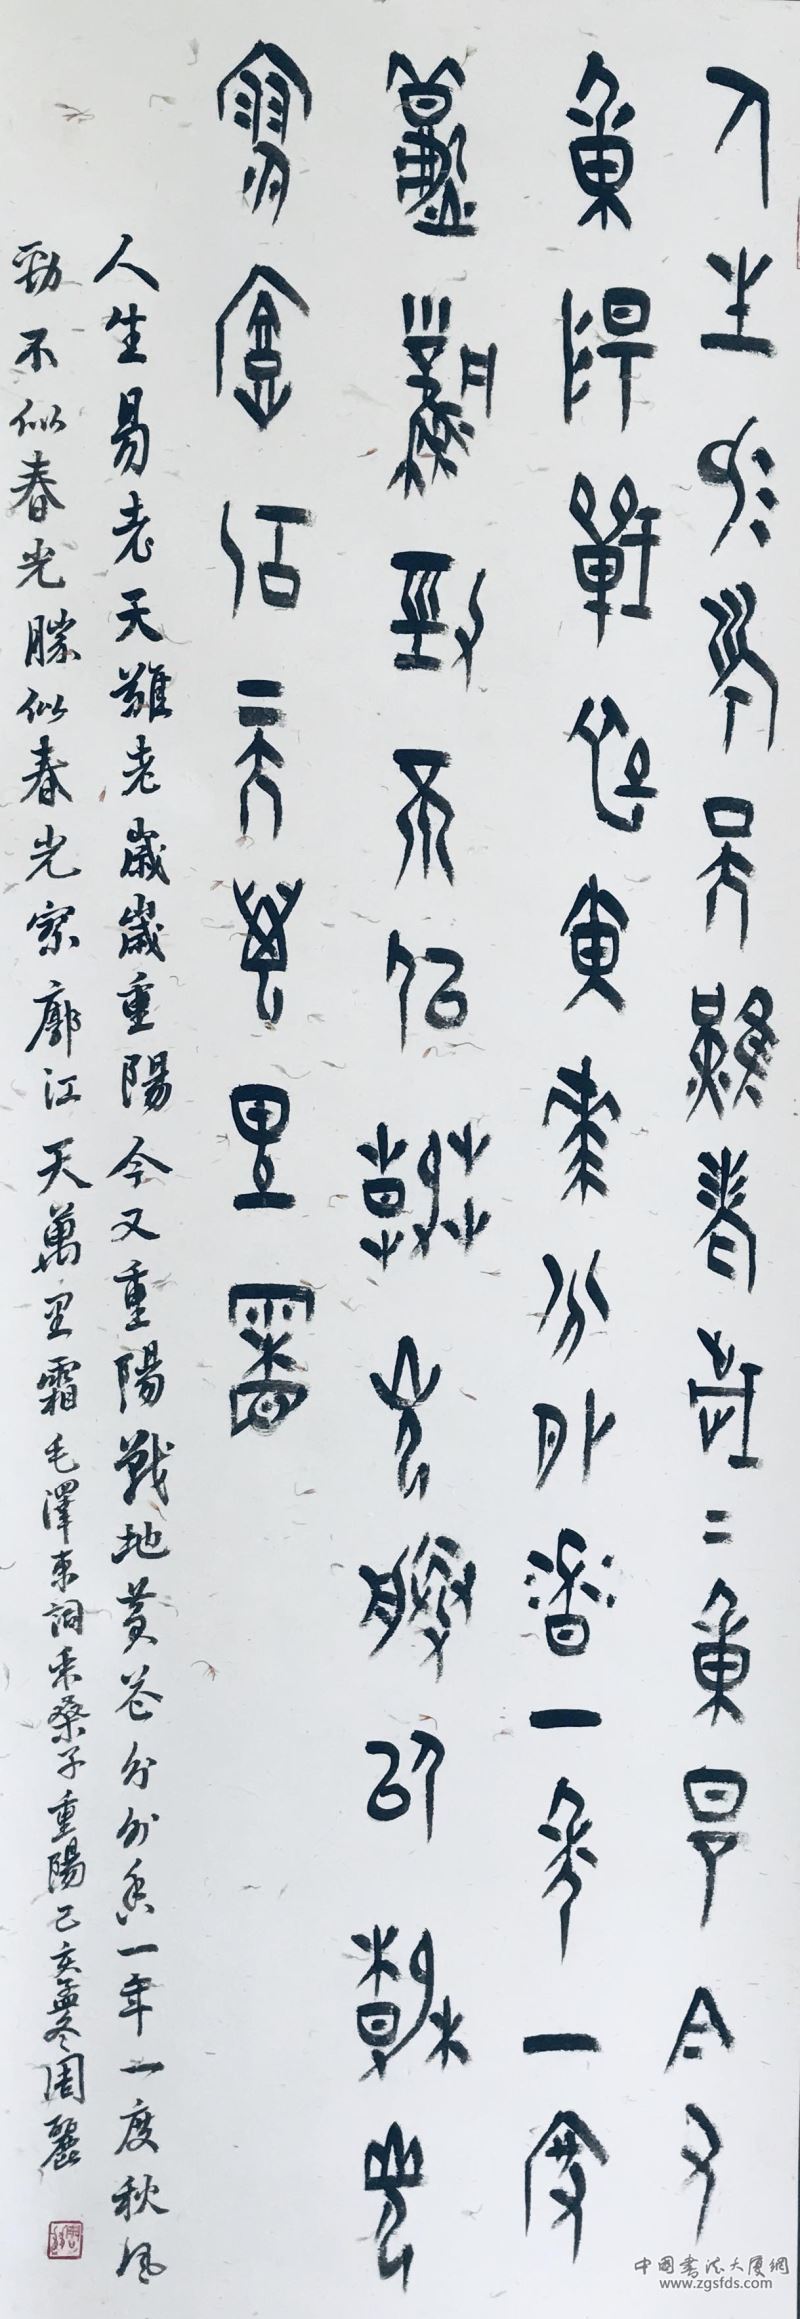 人生易老天難老歲二重陽今又
重陽戰地黃花分外香一年一度
秋風勁不似春光勝似春光
寥廓江天萬里霜
人生易老天難老歲歲重陽今又重陽戰地黃花分外香一年一度秋風
勁不似春光勝似春光寥廓江天萬里霜毛澤東詞采桑子重陽己亥孟冬周麗
中國書法大廈網
www.zgsfds.com